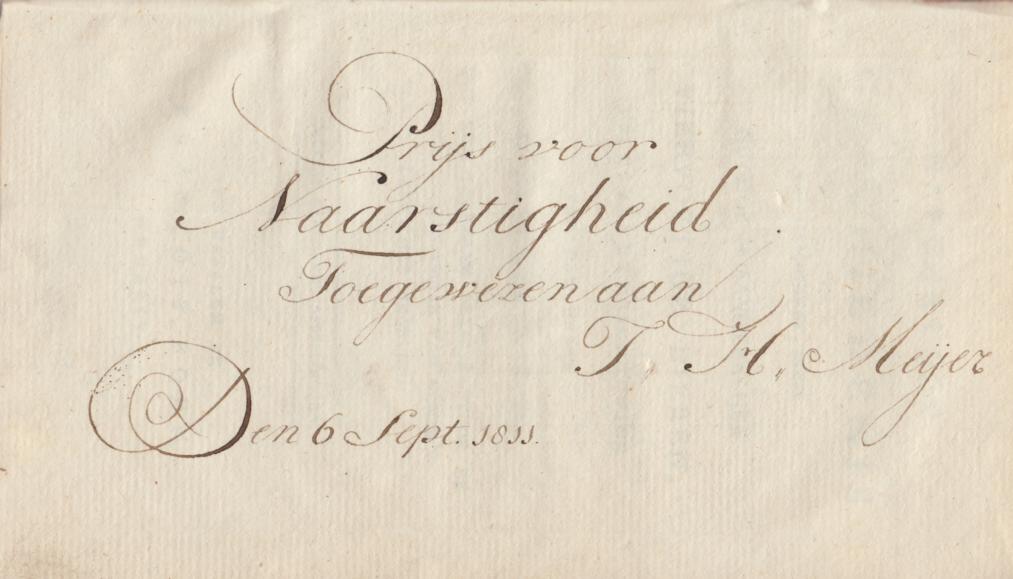 Prijs voor
Naarstigheid
Toegewezen aan
T. H. Meijer
Den 6 Sept. 1811.